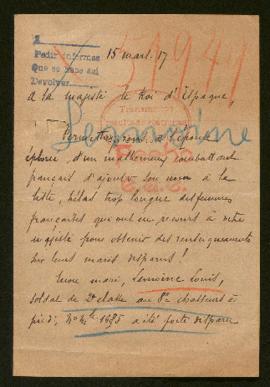 Pedir informes
Que se hace aquí
Devolver
15 mars 17
A la majesté le roi d'Espagne,
Lemoine
Permettez à l'épouse
éplorée, d'un malheureux combattant
français d'ajouter son nom à la
liste, hélas trop longue des femmes
françaises qui ont eu recours à votre
majesté pour obtenir des renseignements
sur leurs maris disparus!
mari, Lemoine Louis,
soldat de 2e classe au 8e chasseurs à
pied, No Mle 1695 a été porté disparu